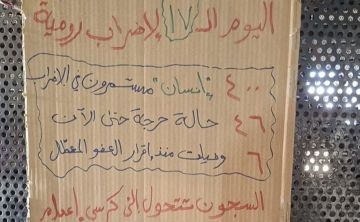 اليوم الـ ١٧ لإضراب رومية
٤٠٠ "إنسان" مستمرون في الإضراب
٤٦ حالة حرجة حتى الآن
٦ وفيات منذ إقرار العفو المعطل
السجون تتحول إلى كرسي إعدام